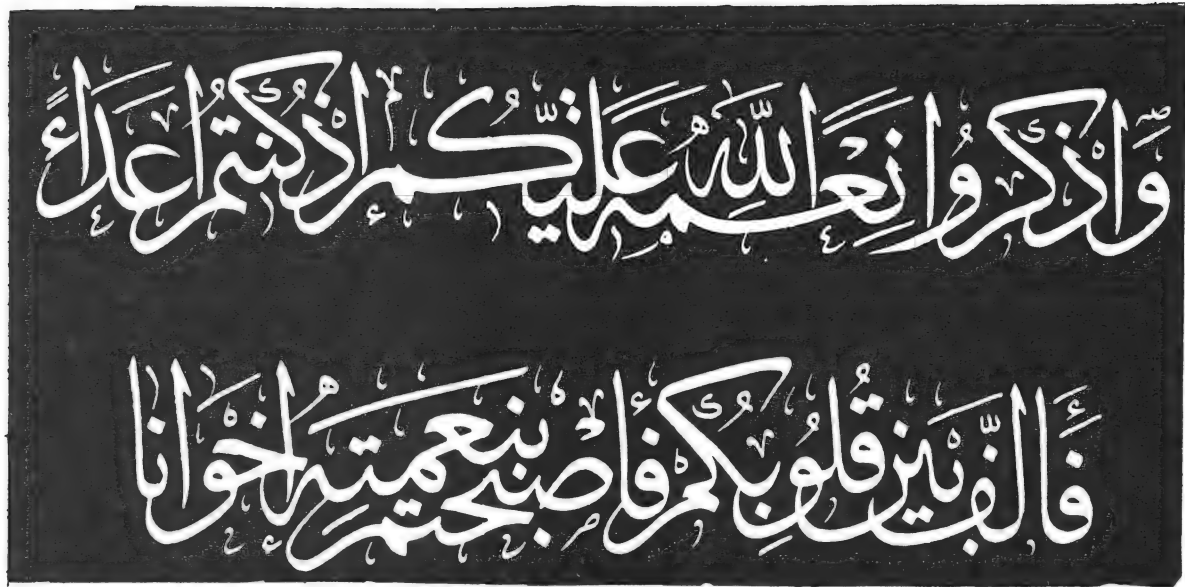 وَاذْكُرُوا نِعْمَةَ اللَّهِ عَلَيْكُمْ إِذْ كُنْتُمْ أَعْدَاءً
فَأَلَّفَ بَيْنَ قُلُوبِكُمْ فَأَصْبَحْتُمْ بِنِعْمَتِهِ إِخْوَانًا